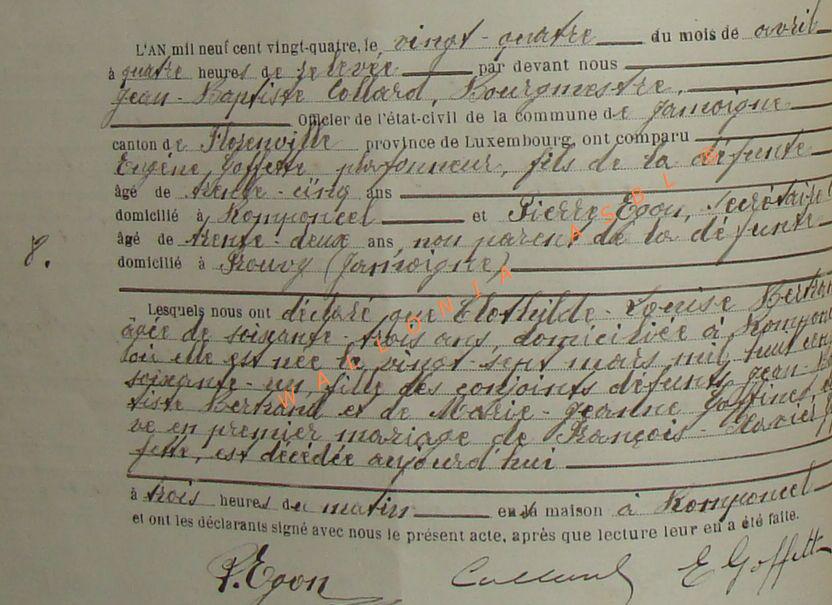 L'AN mil neuf cent vingt-quatre, le vingt-quatre du mois de avril
à quatre heures de relevée par devant nous
Jean-Baptiste Collard, Bourgmestre,
Officier de l'état-civil de la commune de Jamoigne
canton de Florenville province de Luxembourg, ont comparu
Eugène Goffette plafonneur, fils de la défunte
âgé de trente-cinq ans
domicilié à Romponcel et Pierre Egon, Secrétaire
8. âgé de trente-deux ans, non parent de la défunte
domicilié à Prouvy (Jamoigne)
Lesquels nous ont déclaré que Clothilde-Louise Bertran
âgée de soixante-trois ans, domiciliée à Rompon
où elle est née le vingt sept mars mil huit cent
soixante-un, fille des conjoints défunts Jean-
tiste Bertrand et de Marie-Jeanne
ve en premier mariage de François-Xavier
fette, est décédée aujourd'hui
à trois heures du matin en sa maison à Romponcel
et ont les déclarants signé avec nous le présent acte, après que lecture leur en a été faite.
P. Egon Collard E Goffett
WALLONIA ASBL